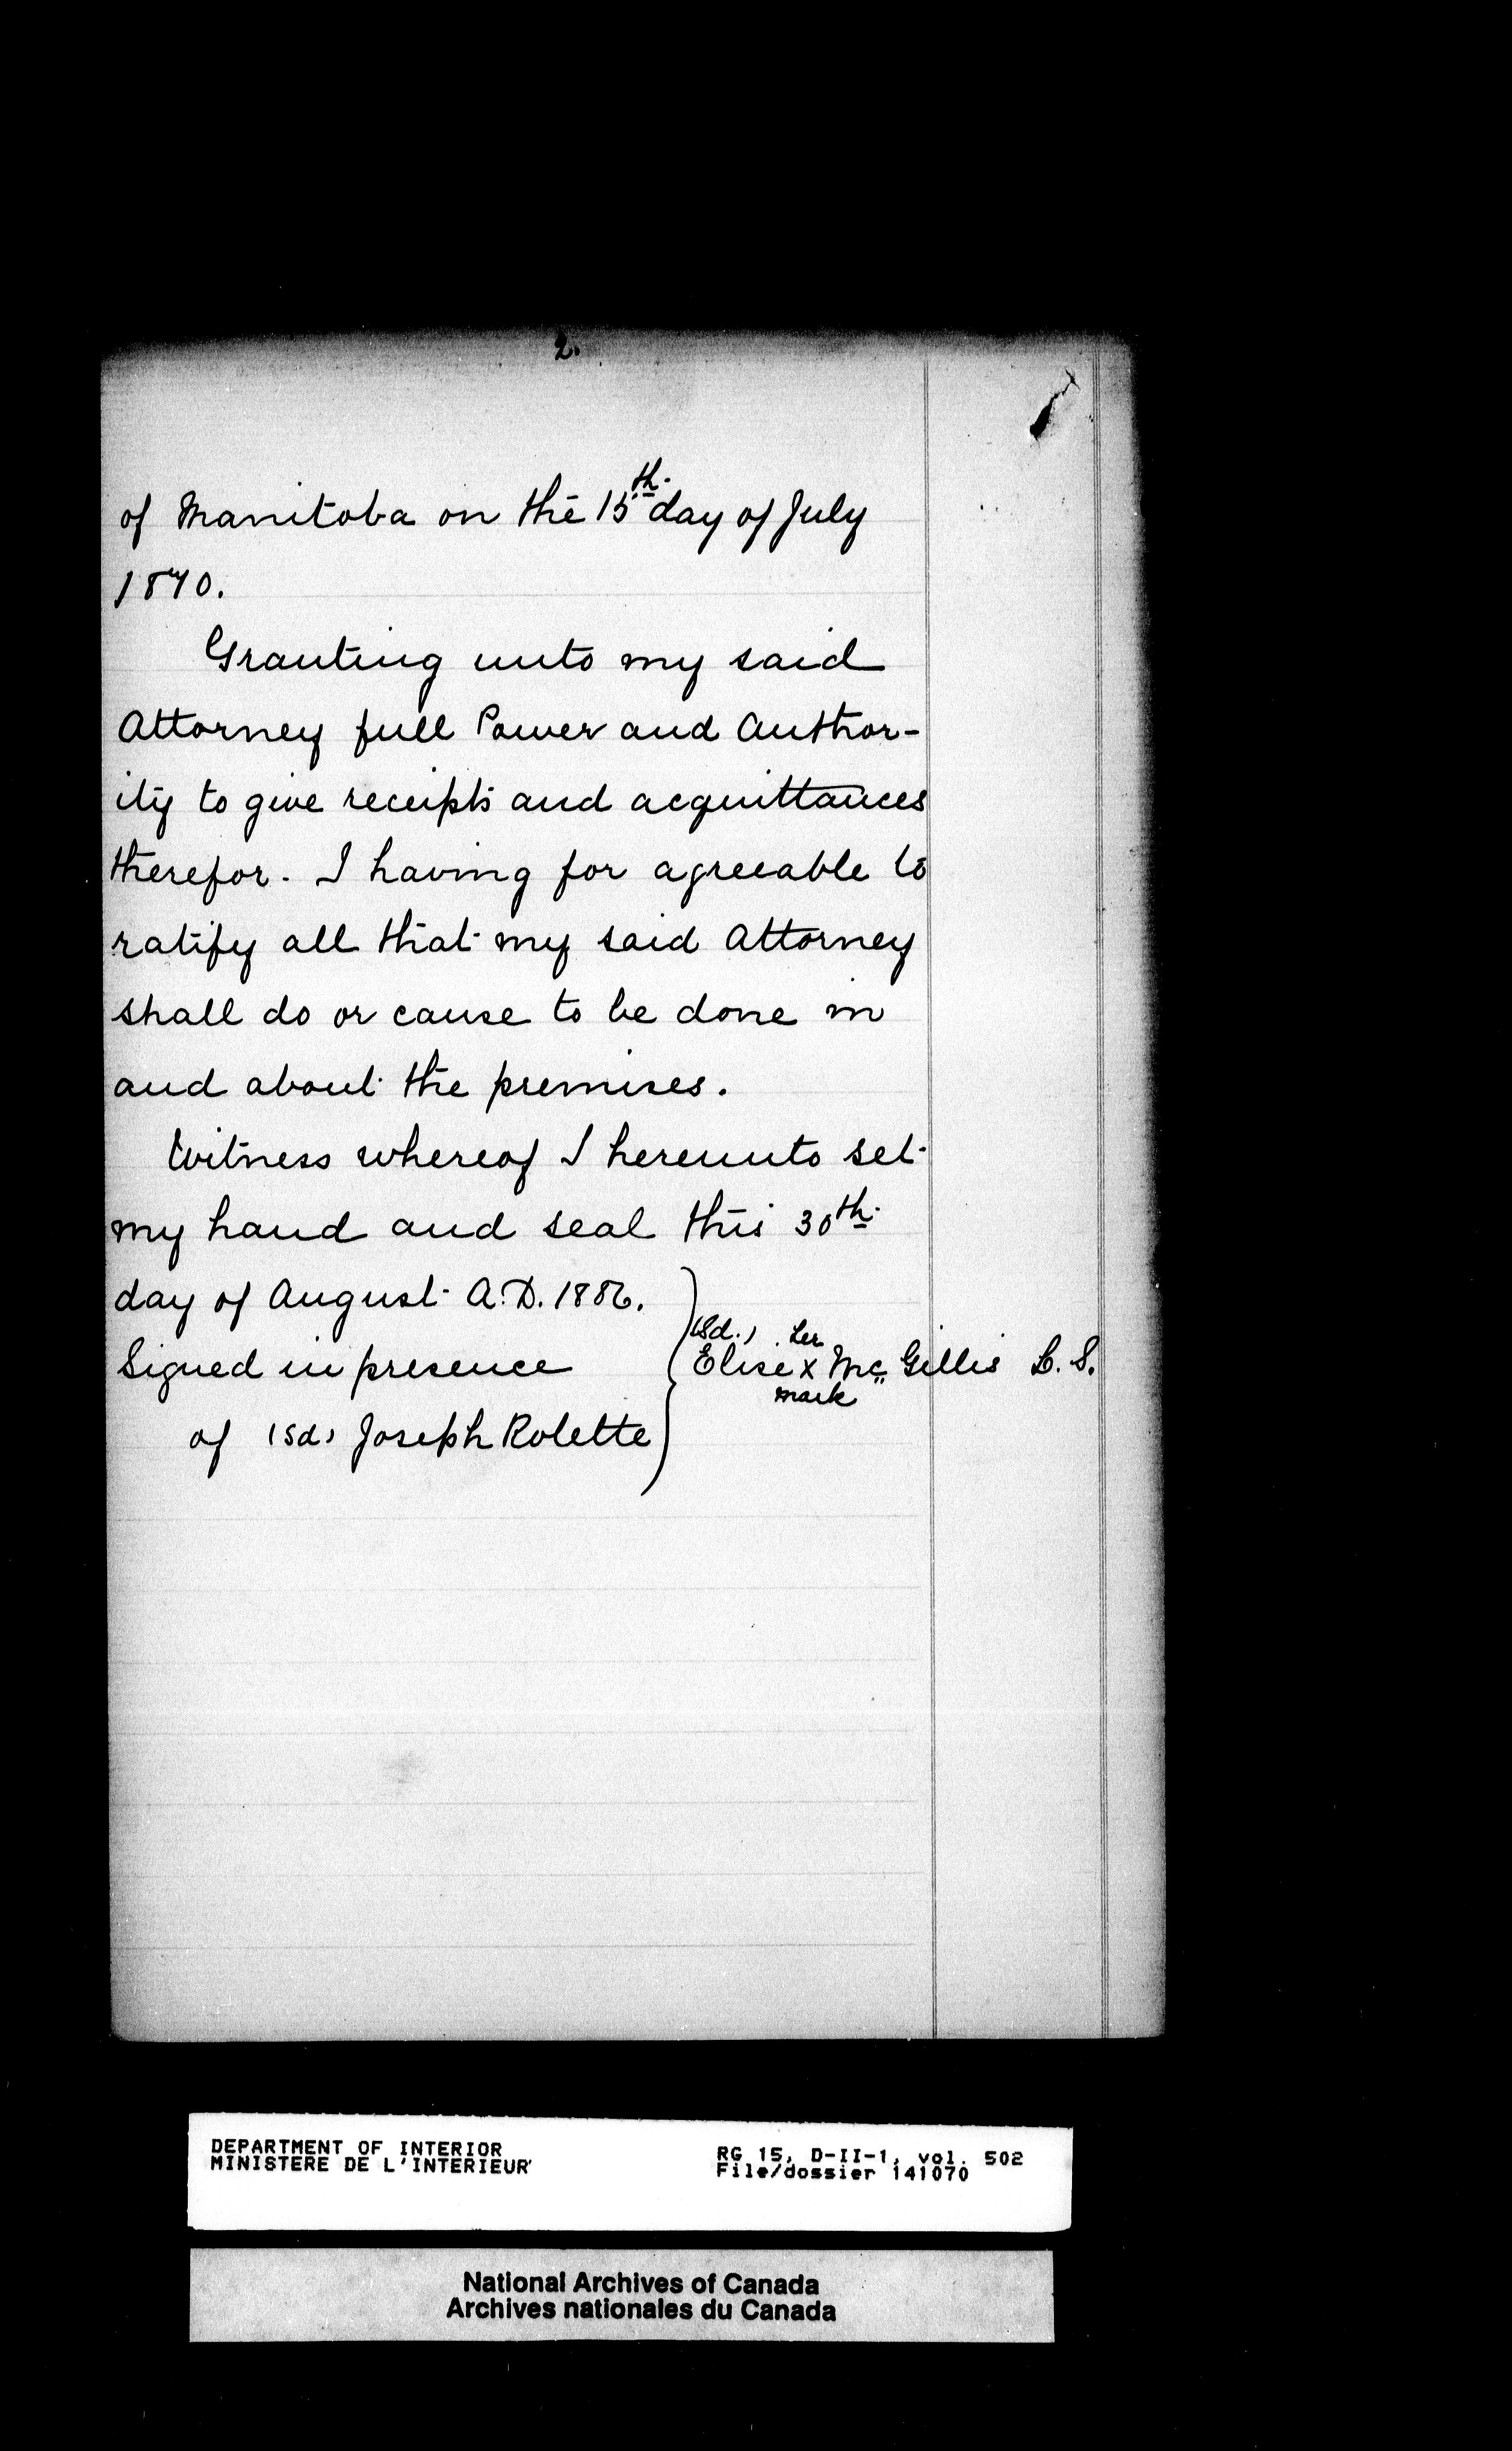 2.
of Manitoba on the 15th. day of July
1870.
Granting unto my said
Attorney full Power and Author-
ity to give receipts and acquittances
therefor. I having for agreeable to
ratify all that my said Attorney
shall do or cause to be done in
and about the premises.
Witness whereof I hereunto set
my hand and seal this 30th.
day of August A.D. 1886.
Signed in presence
of (Sd) Joseph Rolette
(Sd.) her
Elise x Mc Gillis L. S.
mark
DEPARTMENT OF INTERIOR
MINISTERE DE L'INTERIEUR
RG 15, D-II-1, vol. 502
File/dossier 141070
National Archives of Canada
Archives nationales du Canada